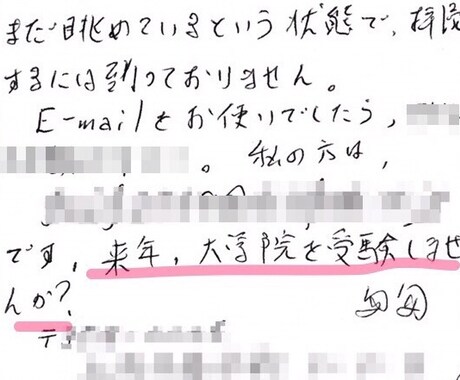 まだ眺めているという状態で、拝読
するには到っておりません。
E-mailをお使いでしたら、
。私の方は、
です。来年、大学院を受験しませ
んか?
匆匆